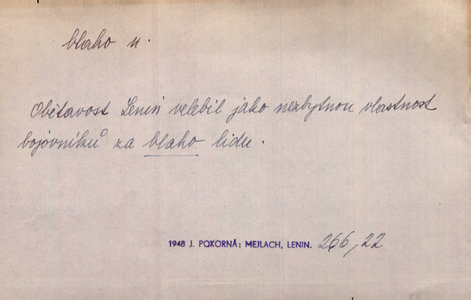 blaho n.
Obětavost Lenin velebil jako nezbytnou vlastnost
bojovníků za blaho lidu.
1948 J. POKORNÁ: MEJLACH, LENIN. 266,22